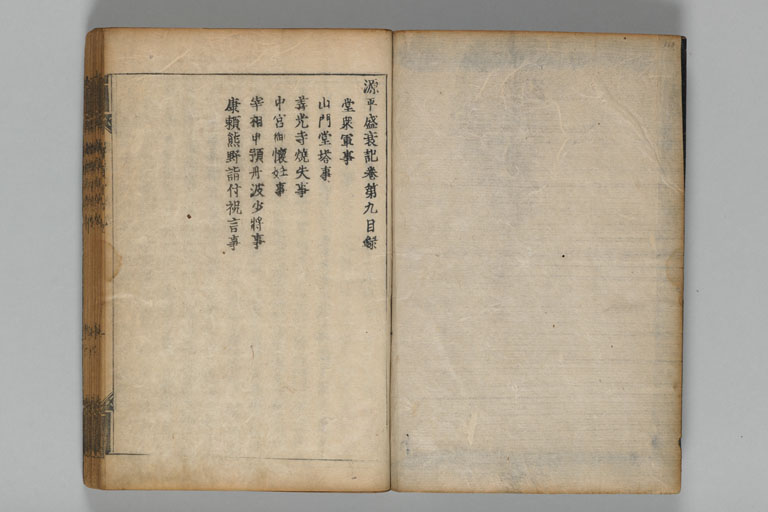 源平盛衰記巻第九目録
堂衆軍事
山門堂塔事
善光寺焼失事
中宮御懐妊事
宰相申預丹波少将事
康頼熊野詣付祝言事